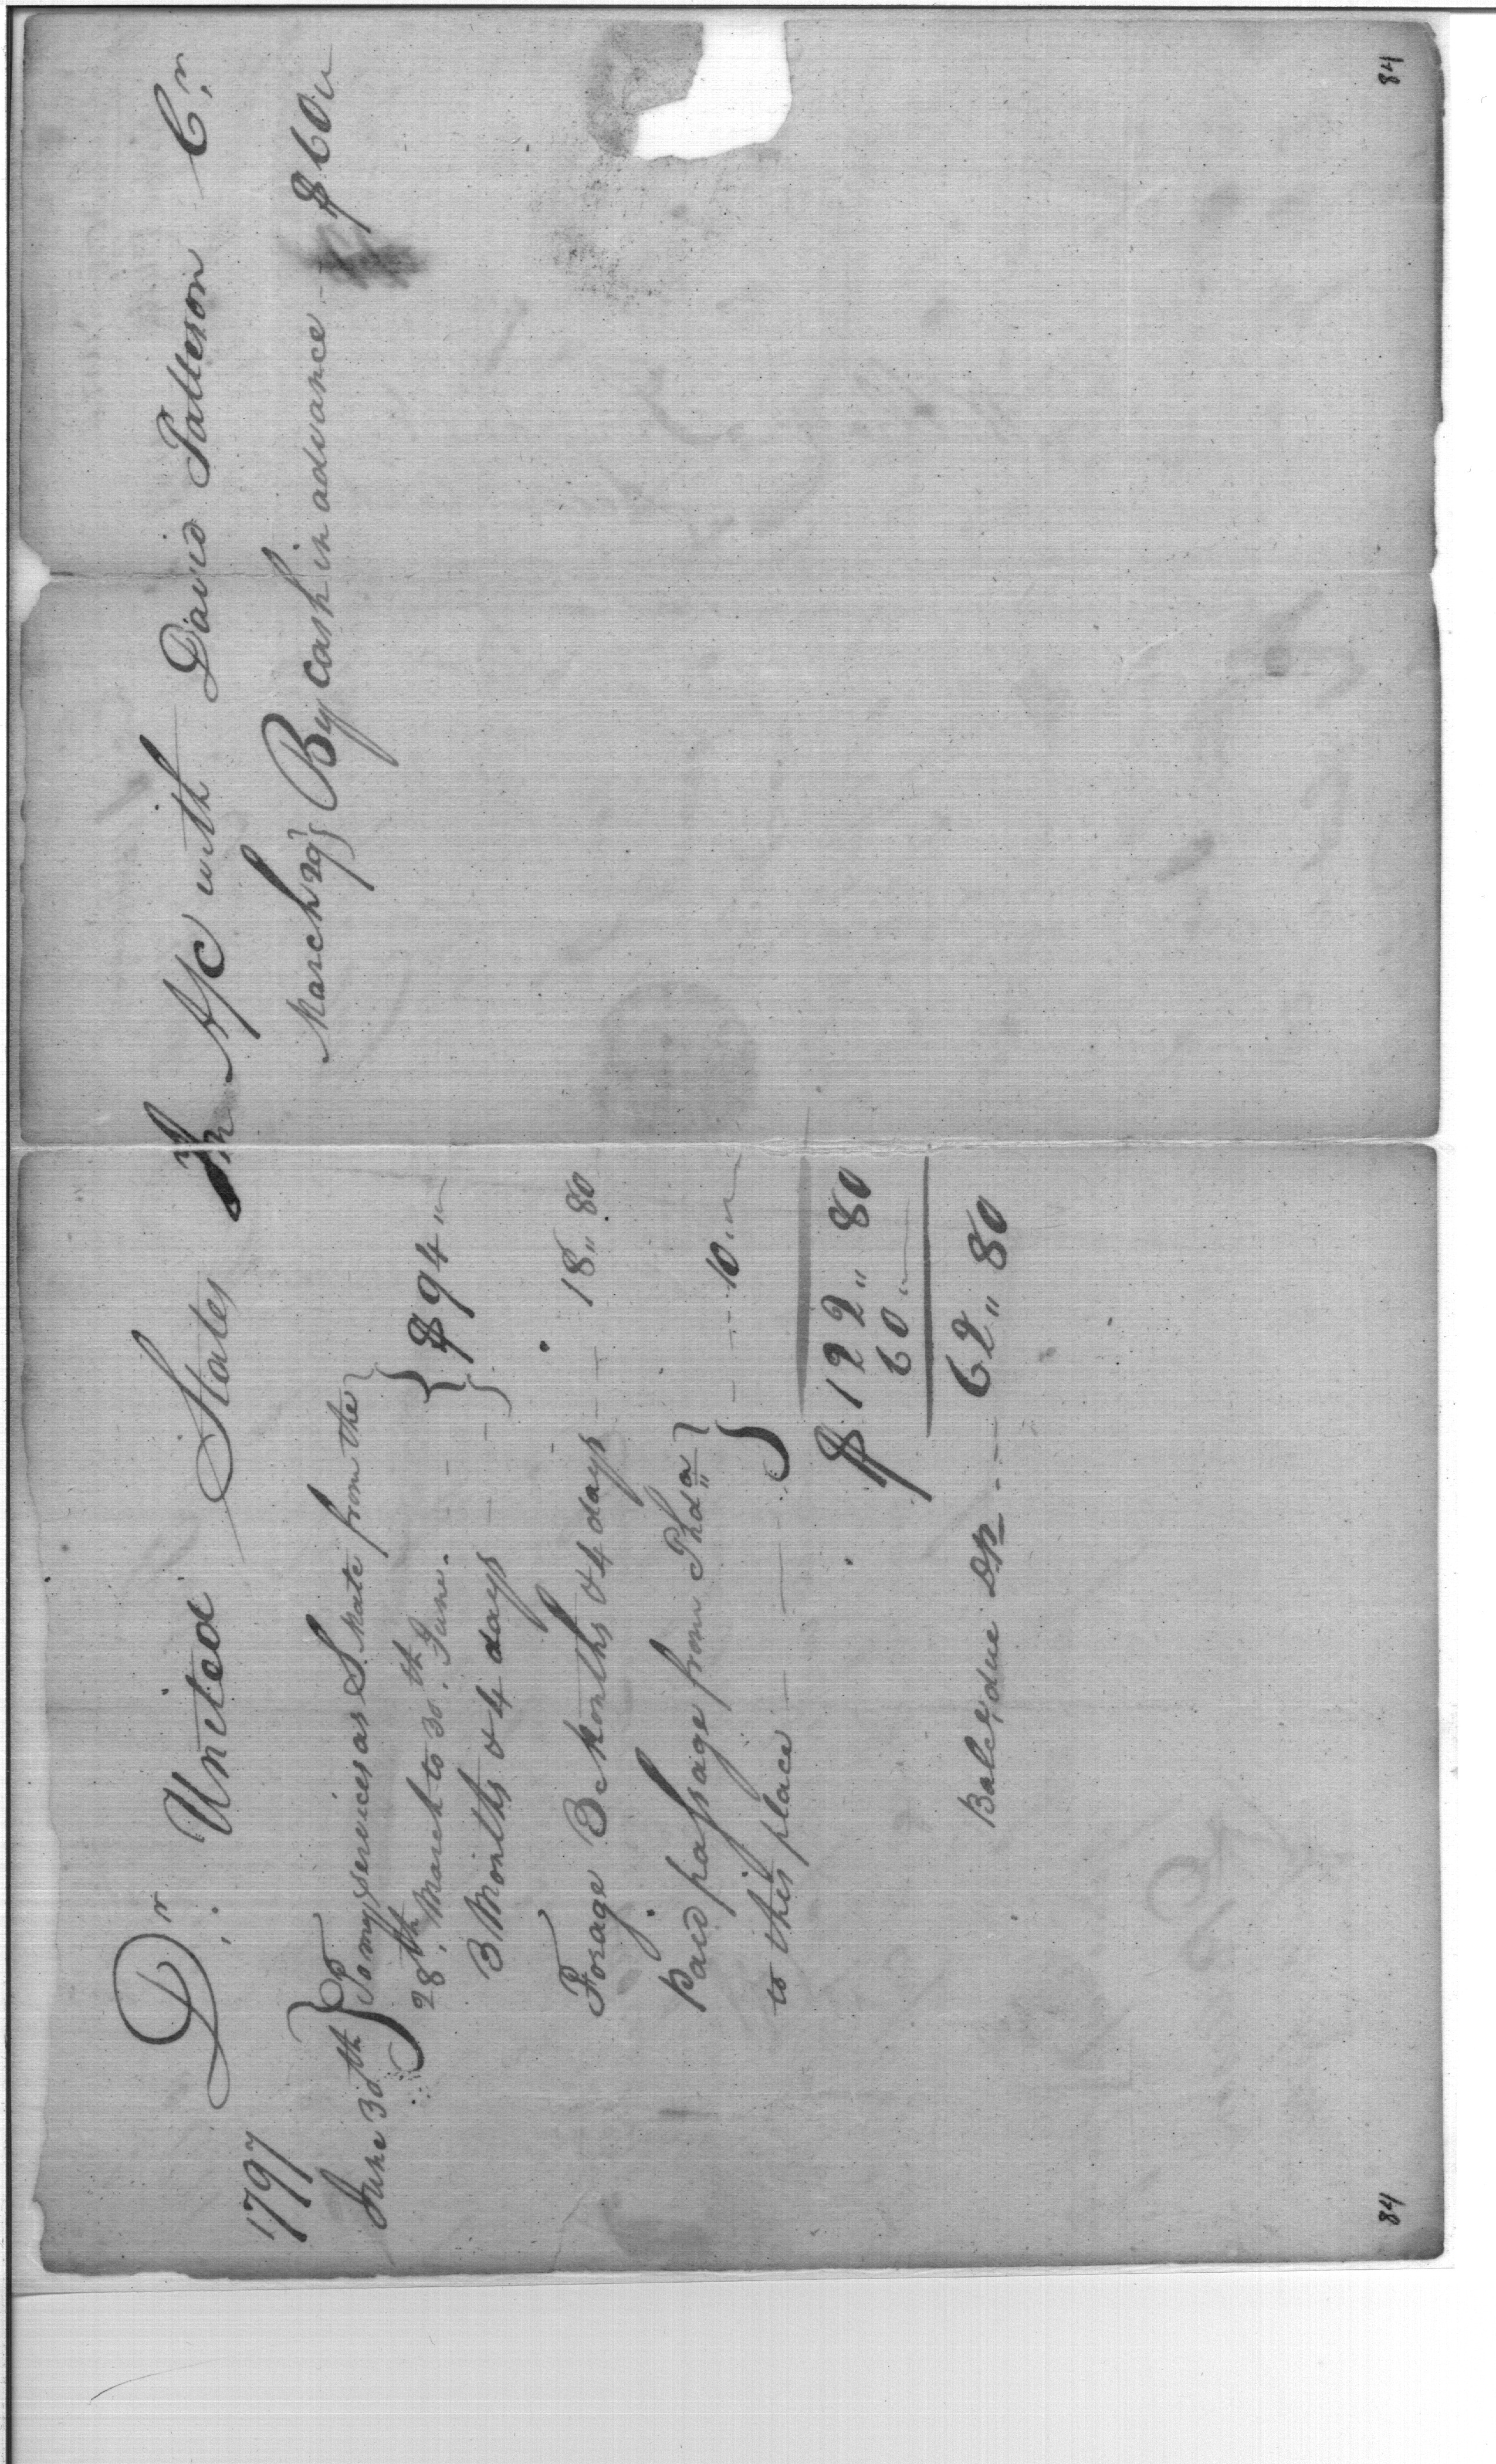 Dr. United States In A/C with David Patterson Cr.
1797
June 30th } To my services as S. Mate from the }
28th. March to 30th. June. } $94 "
3 Months & 4 days
Forage 3 Months & 4 days 18 " 80
Paid passage from Phda }
to this place } 10 "
$ 122 " 80
60 "
Balce. due DP 62 " 80
March 29 } By cash in advance $60 "
84
84